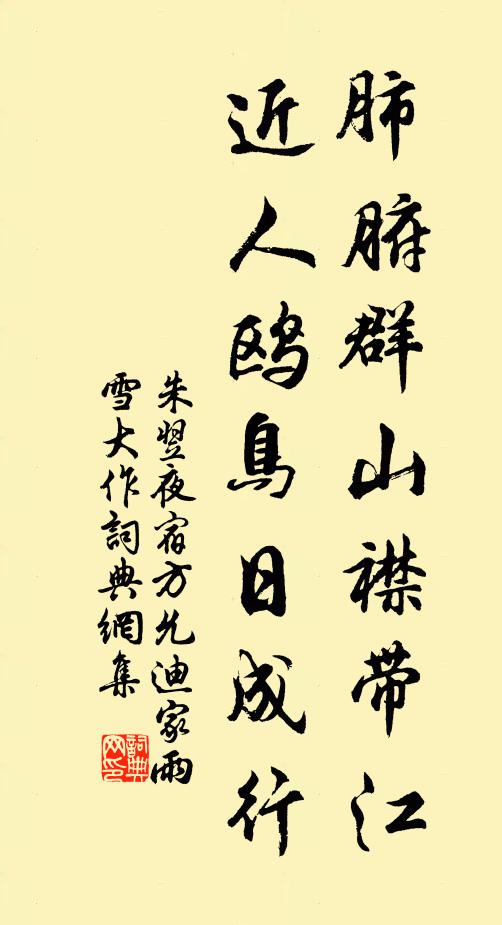 肺腑群山襟带江
近人鸥鳥日成行
朱翌夜宿方允迪家雨
雪大作詞典網集
詞典
网印